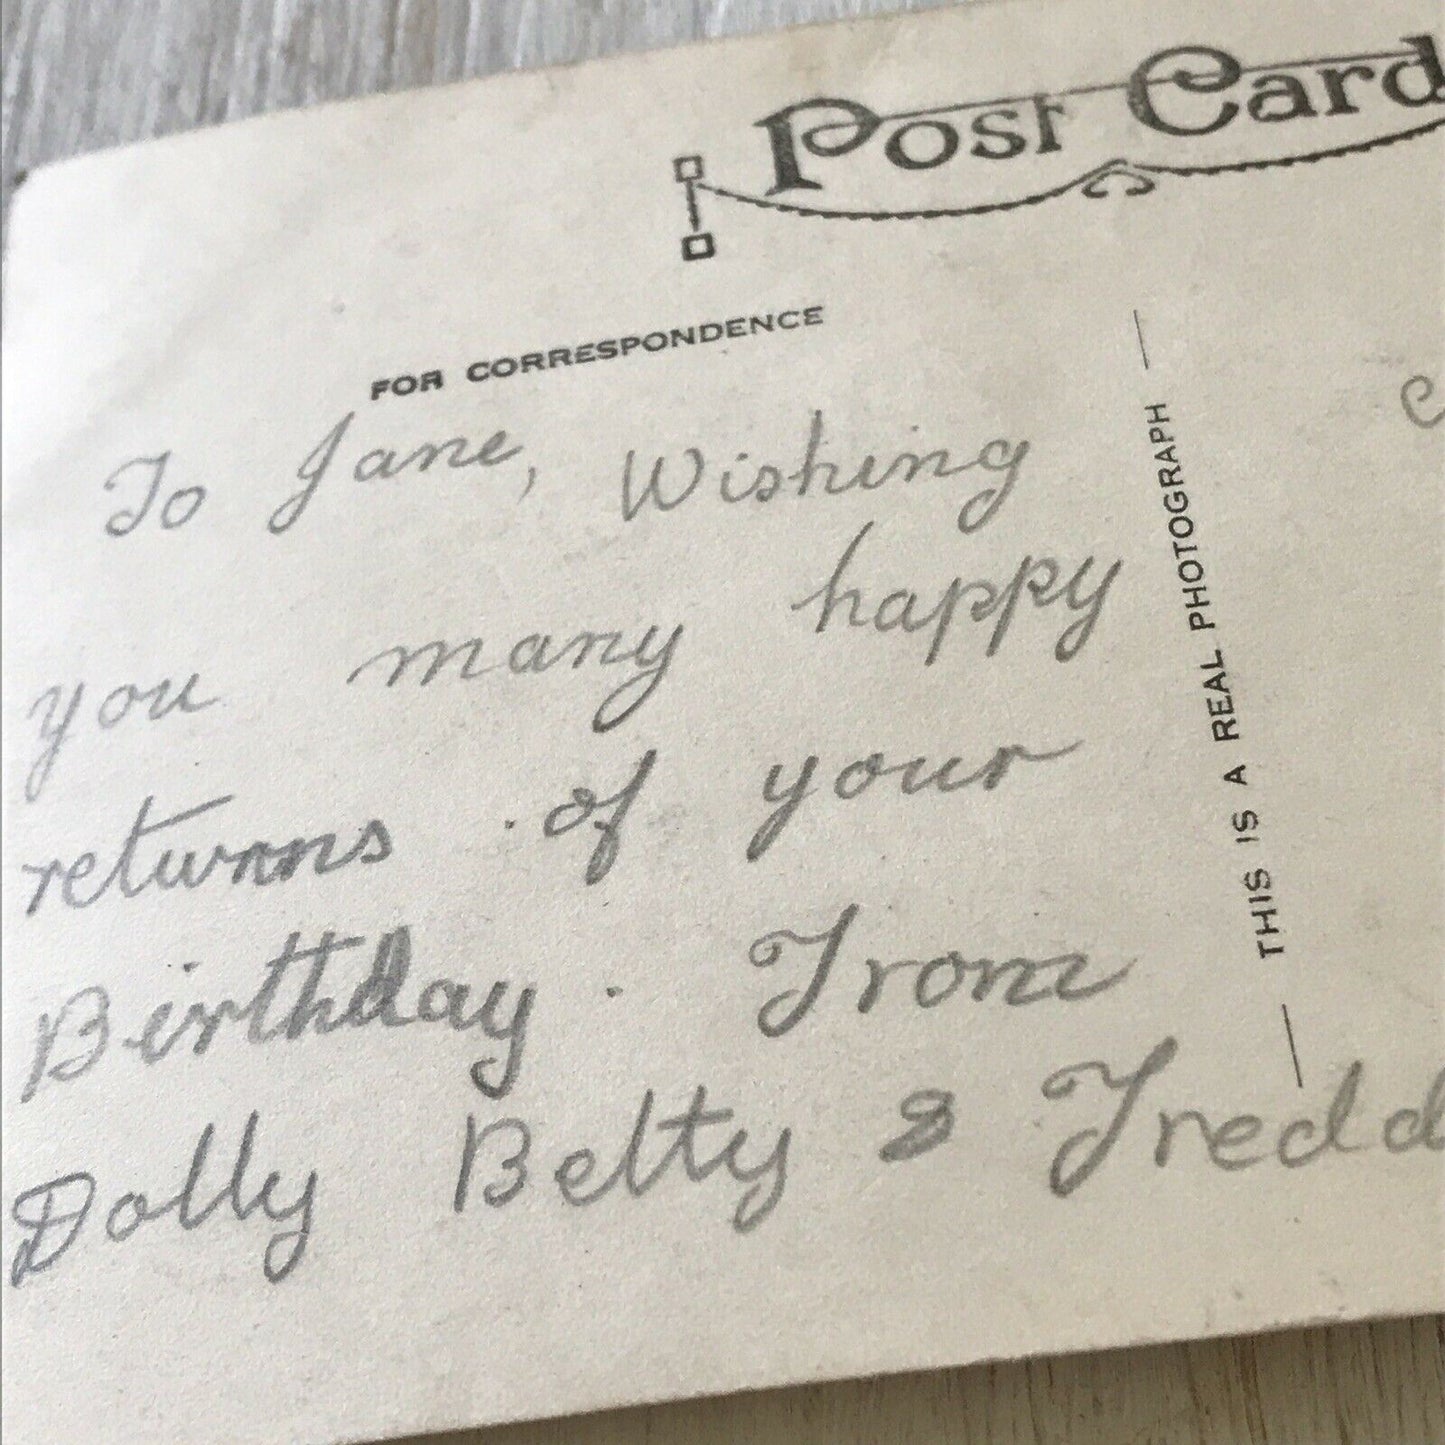 Post Card
FOR CORRESPONDENCE
To Jane, Wishing
you many happy
returns of your
Birthday. From
Dolly Betty & Fredd
THIS IS A REAL PHOTOGRAPH